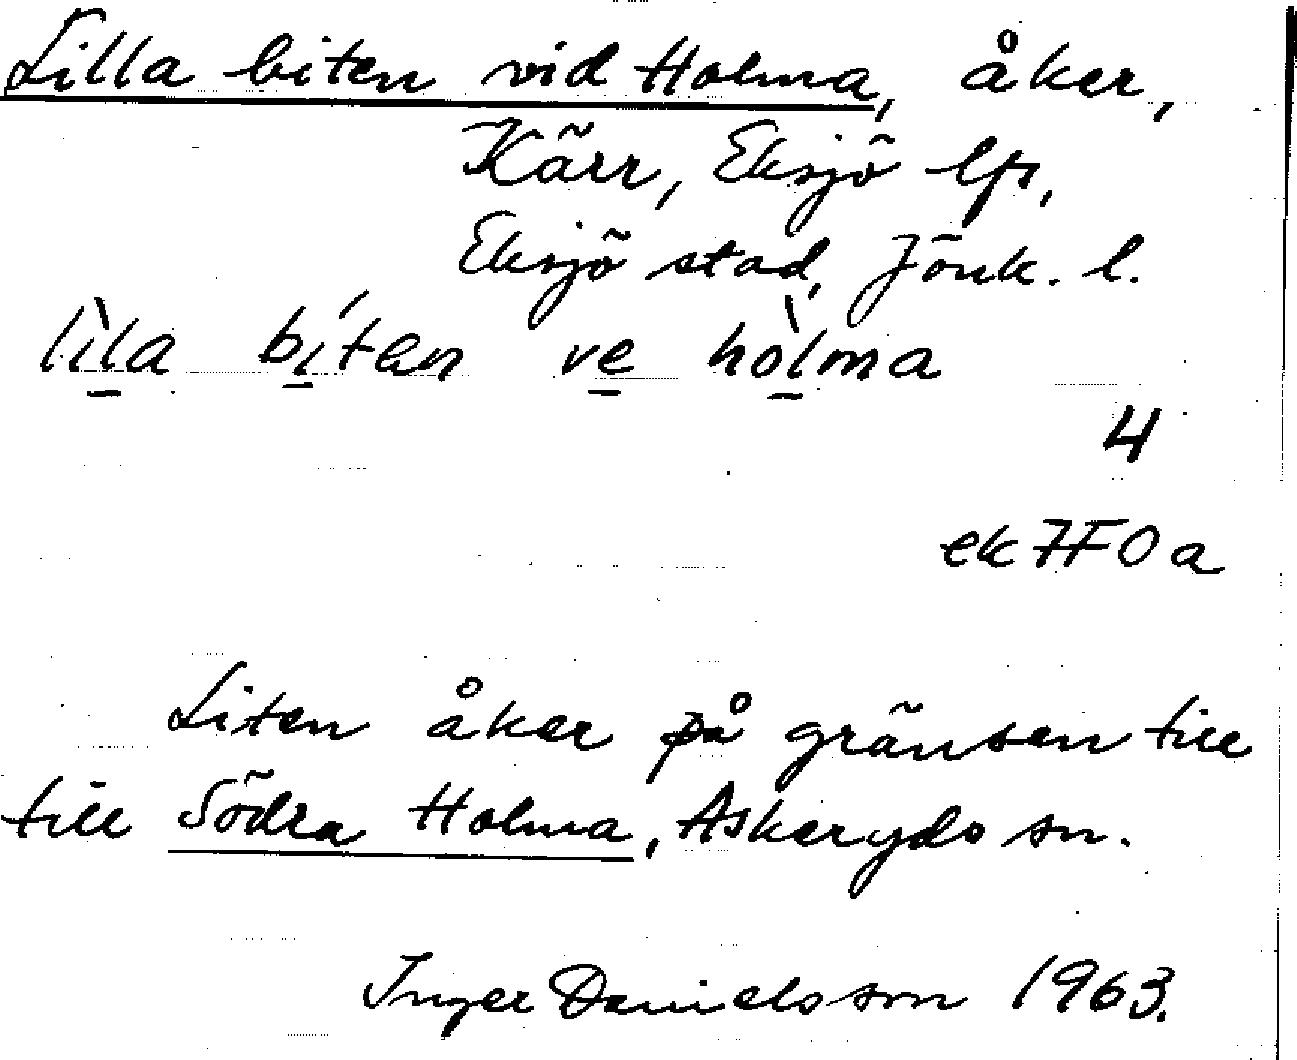 Lilla biten vid Holma, åker,
Kärr, Eksjö lfs,
Eksjö stad, Jönk. l.
lìla bíten ve hòlma
4
ek 7F0a
Liten åker på gränsen till
till Södra Holma, Askeryds sn.
Inger Danielsson 1963.